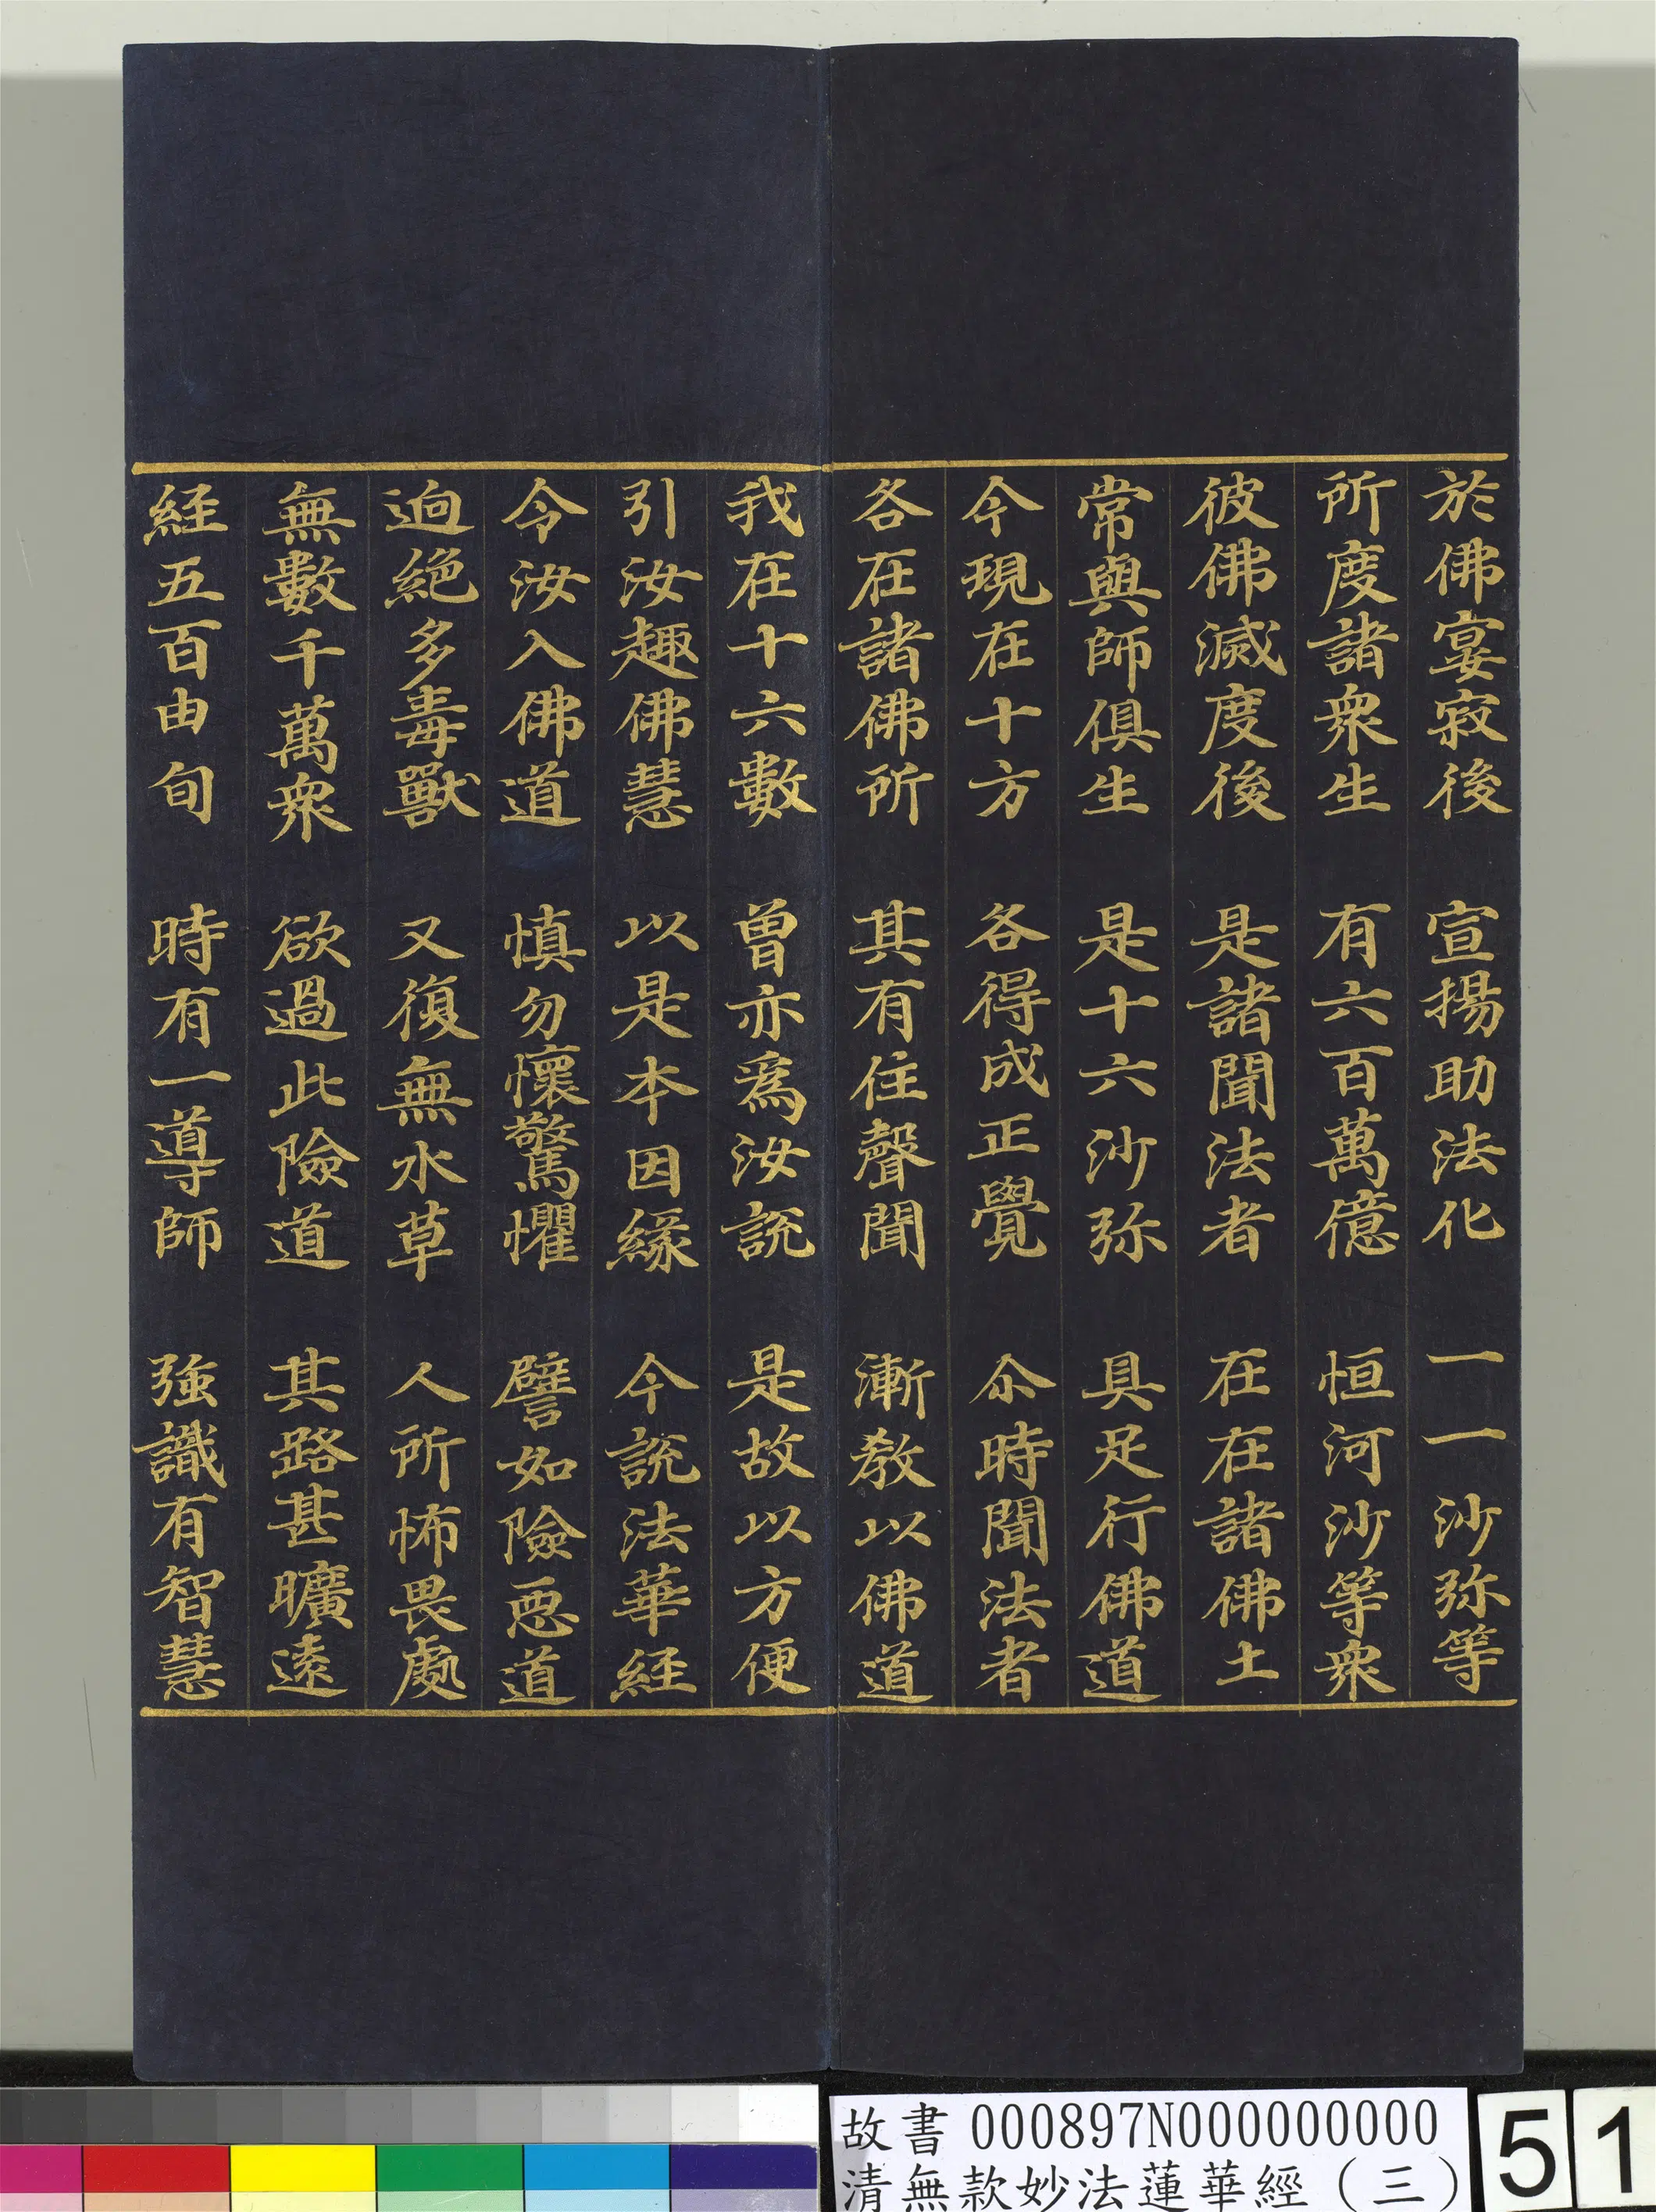 於佛宴寂後 宣揚助法化 一一沙弥等
所度諸衆生 有六百萬億 恒河沙等衆
彼佛滅度後 是諸聞法者 在在諸佛土
常與師俱生 是十六沙弥 具足行佛道
今現在十方 各得成正覺 尒時聞法者
各在諸佛所 其有住聲聞 漸教以佛道
我在十六數 曾亦爲汝說 是故以方便
引汝趣佛慧 以是本因緣 今說法華経
令汝入佛道 慎勿懷驚懼 譬如險惡道
逈絕多毒獸 又復無水草 人所怖畏處
無數千萬衆 欲過此險道 其路甚曠遠
経五百由旬 時有一導師 強識有智慧
故書 000897N000000000
清無款妙法蓮華經（三）
51